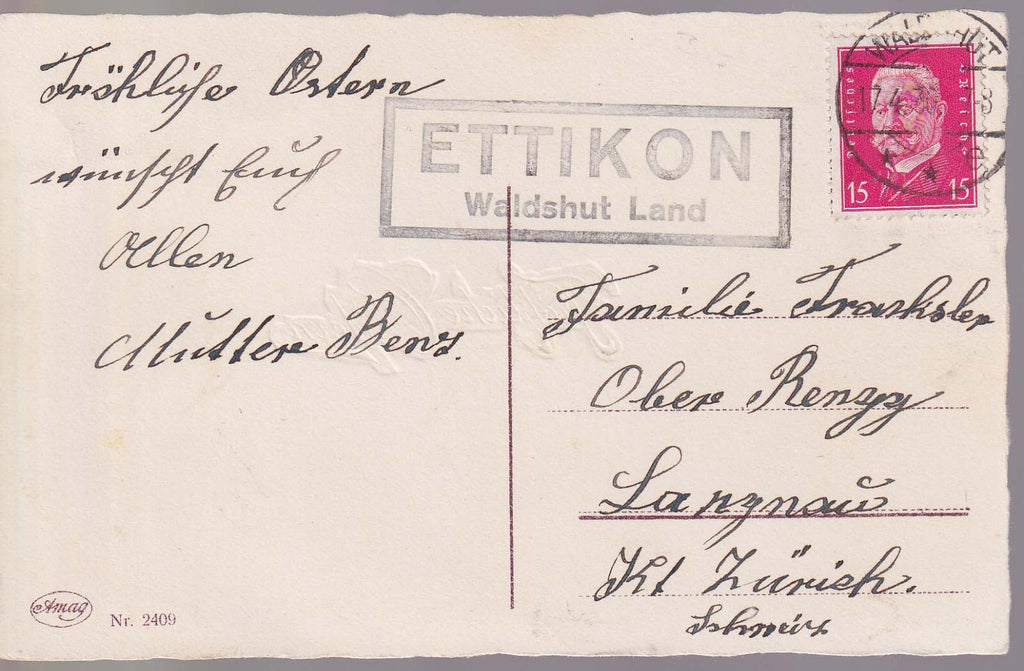 Fröhliche Ostern
wünscht Euch
Allen
Mutter Benz.
ETTIKON
Waldshut Land
WALDSHUT
17.4.
15 15
Familie
Ober
Langnau
Kt Zürich.
Schweiz
Amag
Nr. 2409